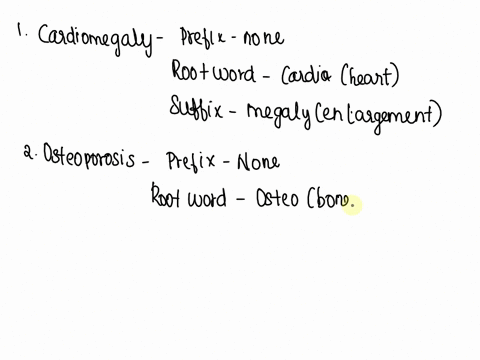 1. Cardiomegaly - Prefix - none
Root word - Cardio (heart)
Suffix - megaly (enlargement)
2. Osteoporosis - Prefix - None
Root word - Osteo (bone